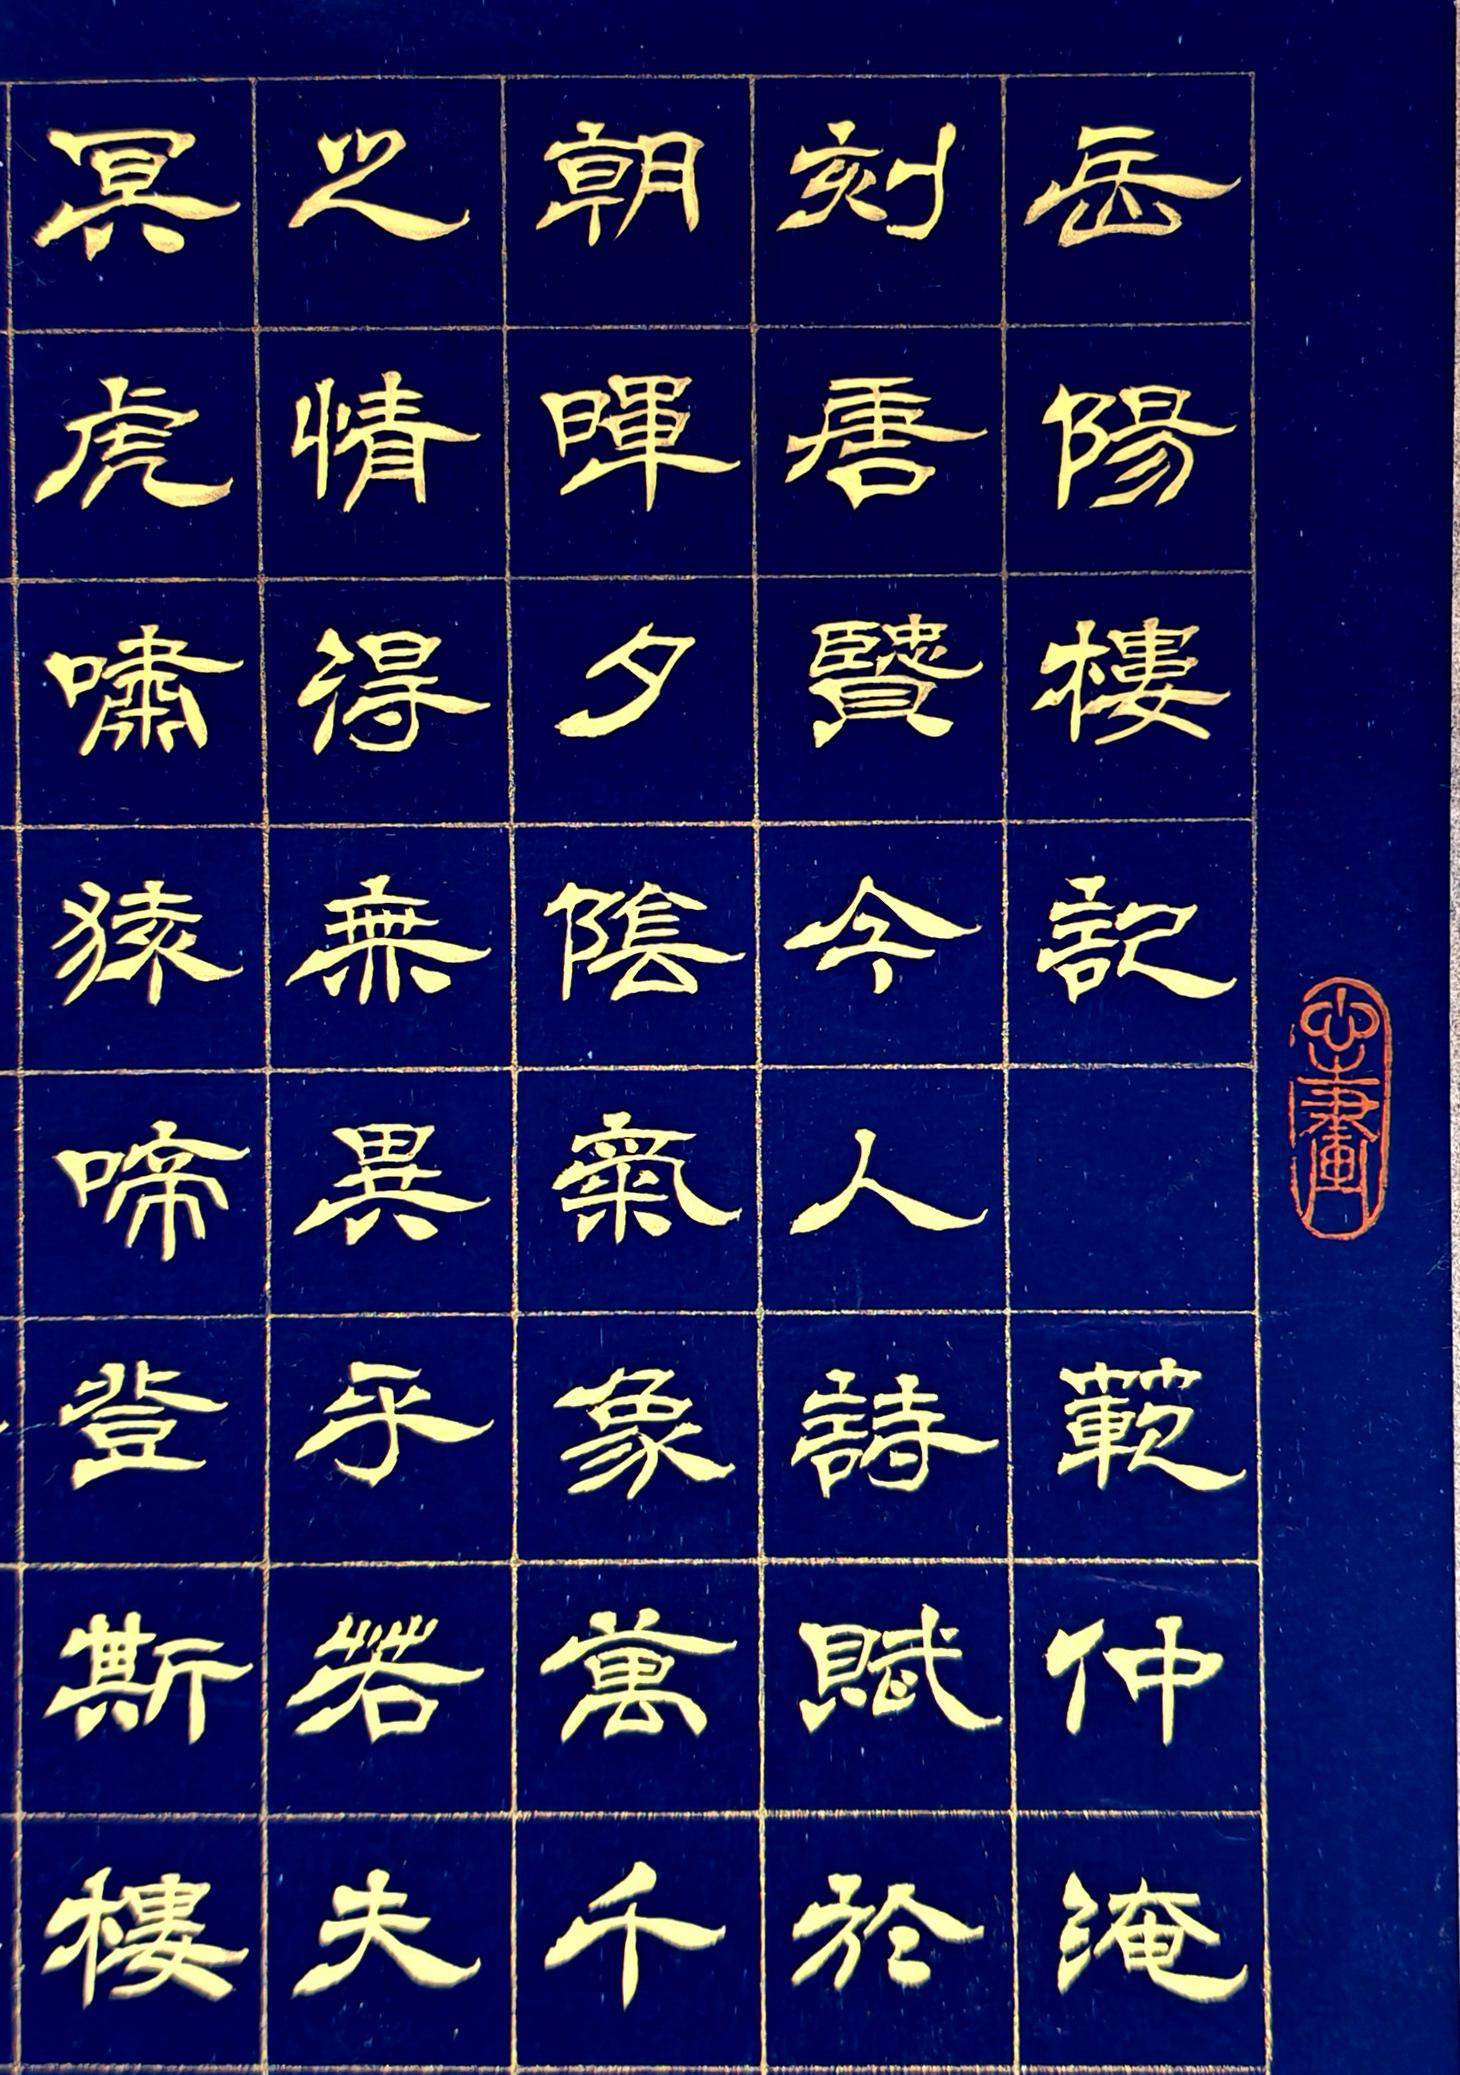 岳陽樓記 範仲淹
刻唐賢今人詩賦於
朝暉夕陰氣象萬千
之情得無異乎若夫
冥虎嘯猿啼登斯樓